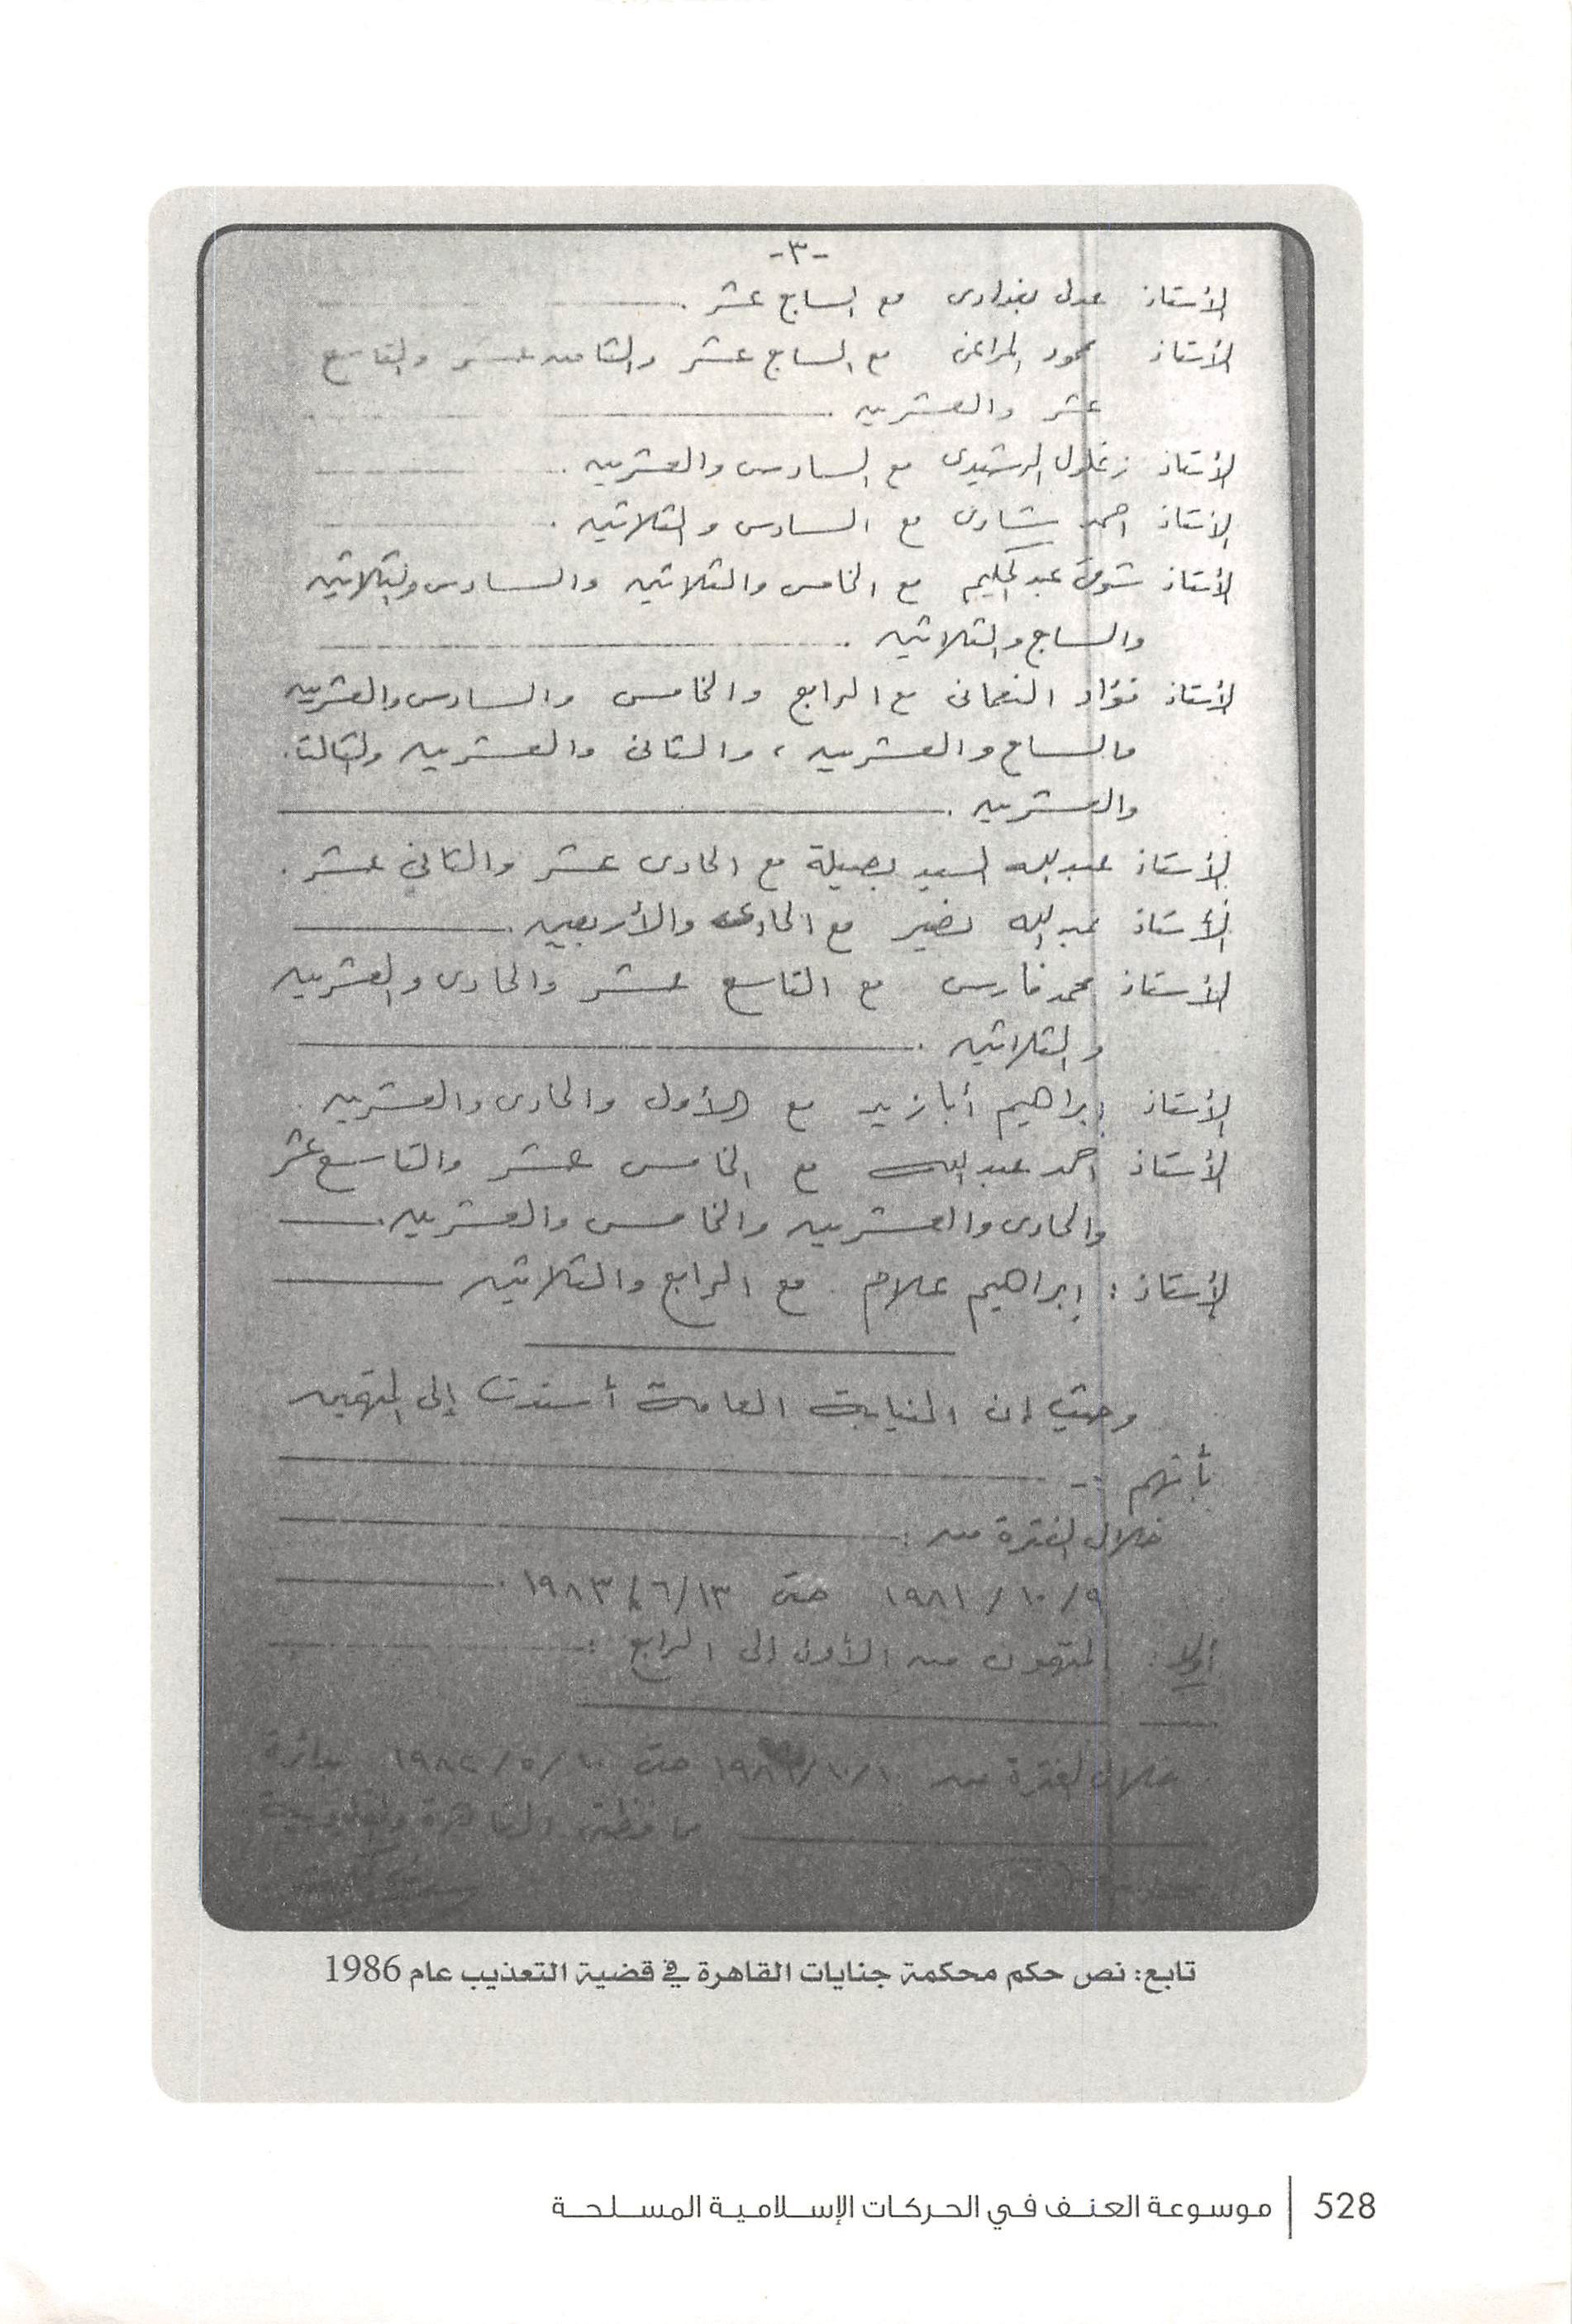 -٣-
الأستاذ عدلى بغدادى مع السابع عشر .
الأستاذ محمود المراغى مع السابع عشر والثامن عشر والتاسع
عشر والعشرين .
الأستاذ زغلول الرشيدى مع السادس والعشرين .
الأستاذ احمد شادى مع السادس والثلاثين .
الأستاذ شوقى عبد الحليم مع الخامس والثلاثين والسادس والثلاثين
والسابع والثلاثين .
الأستاذ فؤاد النعمانى مع الرابع والخامس والسادس والعشرين
والسابع والعشرين ، والثانى والعشرين والثالث
والعشرين .
الأستاذ عبد الله السيد بصيلة مع الحادى عشر والثاني عشر .
الأستاذ عبد الله نضير مع الحادى والأربعين .
الأستاذ محمد فارس مع التاسع عشر والحادى والعشرين
والثلاثين .
الأستاذ إبراهيم أبازيد مع الأول والحادى والعشرين .
الأستاذ احمد عبد الله مع الخامس عشر والتاسع عشر
والحادى والعشرين والخامس والعشرين .
الأستاذ : إبراهيم علام . مع الرابع والثلاثين
وحيث إن النيابة العامة أسندت إلى المتهمين
بأنهم :-
خلال الفترة من :
٩/ ١٠/ ١٩٨١ حتى ١٣/ ٦/ ١٩٨٣ .
أولا : المتهمون من الأول إلى الرابع :
خلال الفترة من ١٠/١٠/ حتى ١٠/ ٥/ ١٩٨٢ بدائرة
محافظتى القاهرة والقليوبية
تابع: نص حكم محكمة جنايات القاهرة في قضية التعذيب عام 1986
528 | موسوعة العنف في الحركات الإسلامية المسلحة